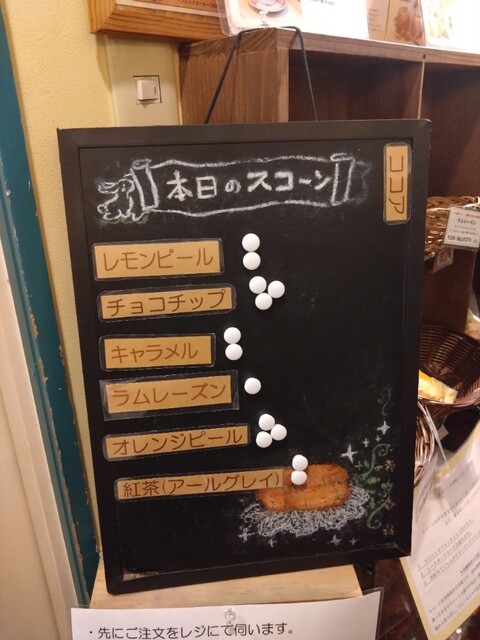 本日のスコーン
ココア
レモンピール
チョコチップ
キャラメル
ラムレーズン
オレンジピール
紅茶(アールグレイ)
・先にご注文をレジにて伺います。